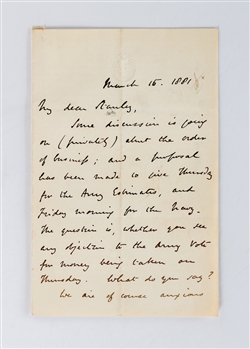 March 16. 1881
My dear Stanley,
Some discussion is going
on (privately) about the order
of business; and a proposal
has been made to give Thursday
for the Army Estimates, and
Friday morning for the Navy.
The question is, whether you see
any objection to the Army Vote
for money being taken on
Thursday. What do you say?
We are of course anxious